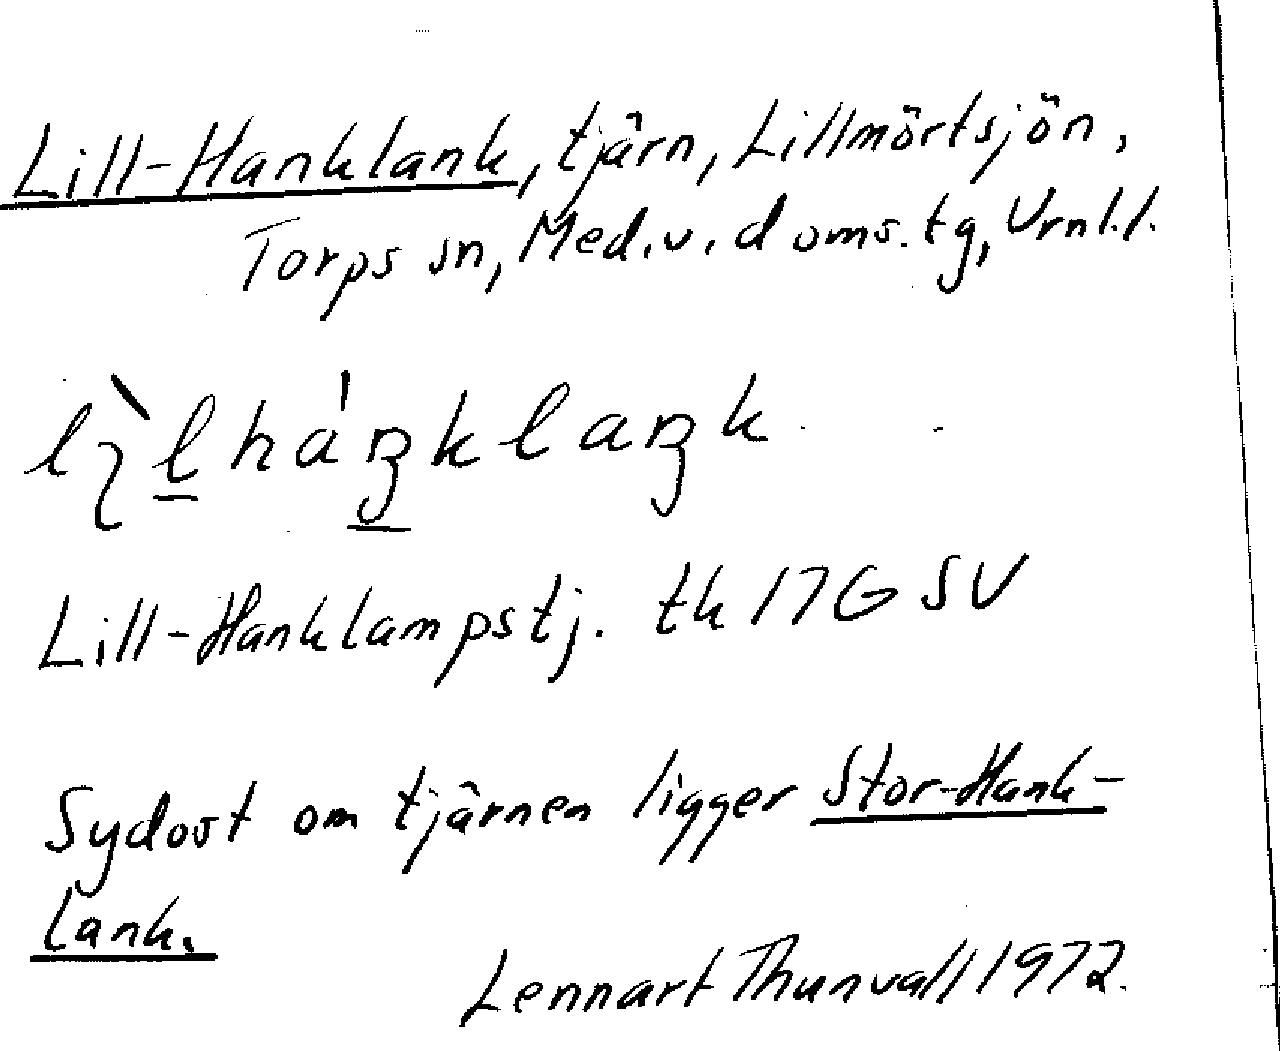 Lill-Hanklank, tjärn, Lillmörtsjön,
Torps sn, Med.v. doms.tg, Vrnl.l.
lɩ̀l̲háŋ̲klaŋk
Lill-Hanklampstj. tk 17G SV
Sydost om tjärnen ligger Stor-Hank-
lank.
Lennart Thunvall 1972.